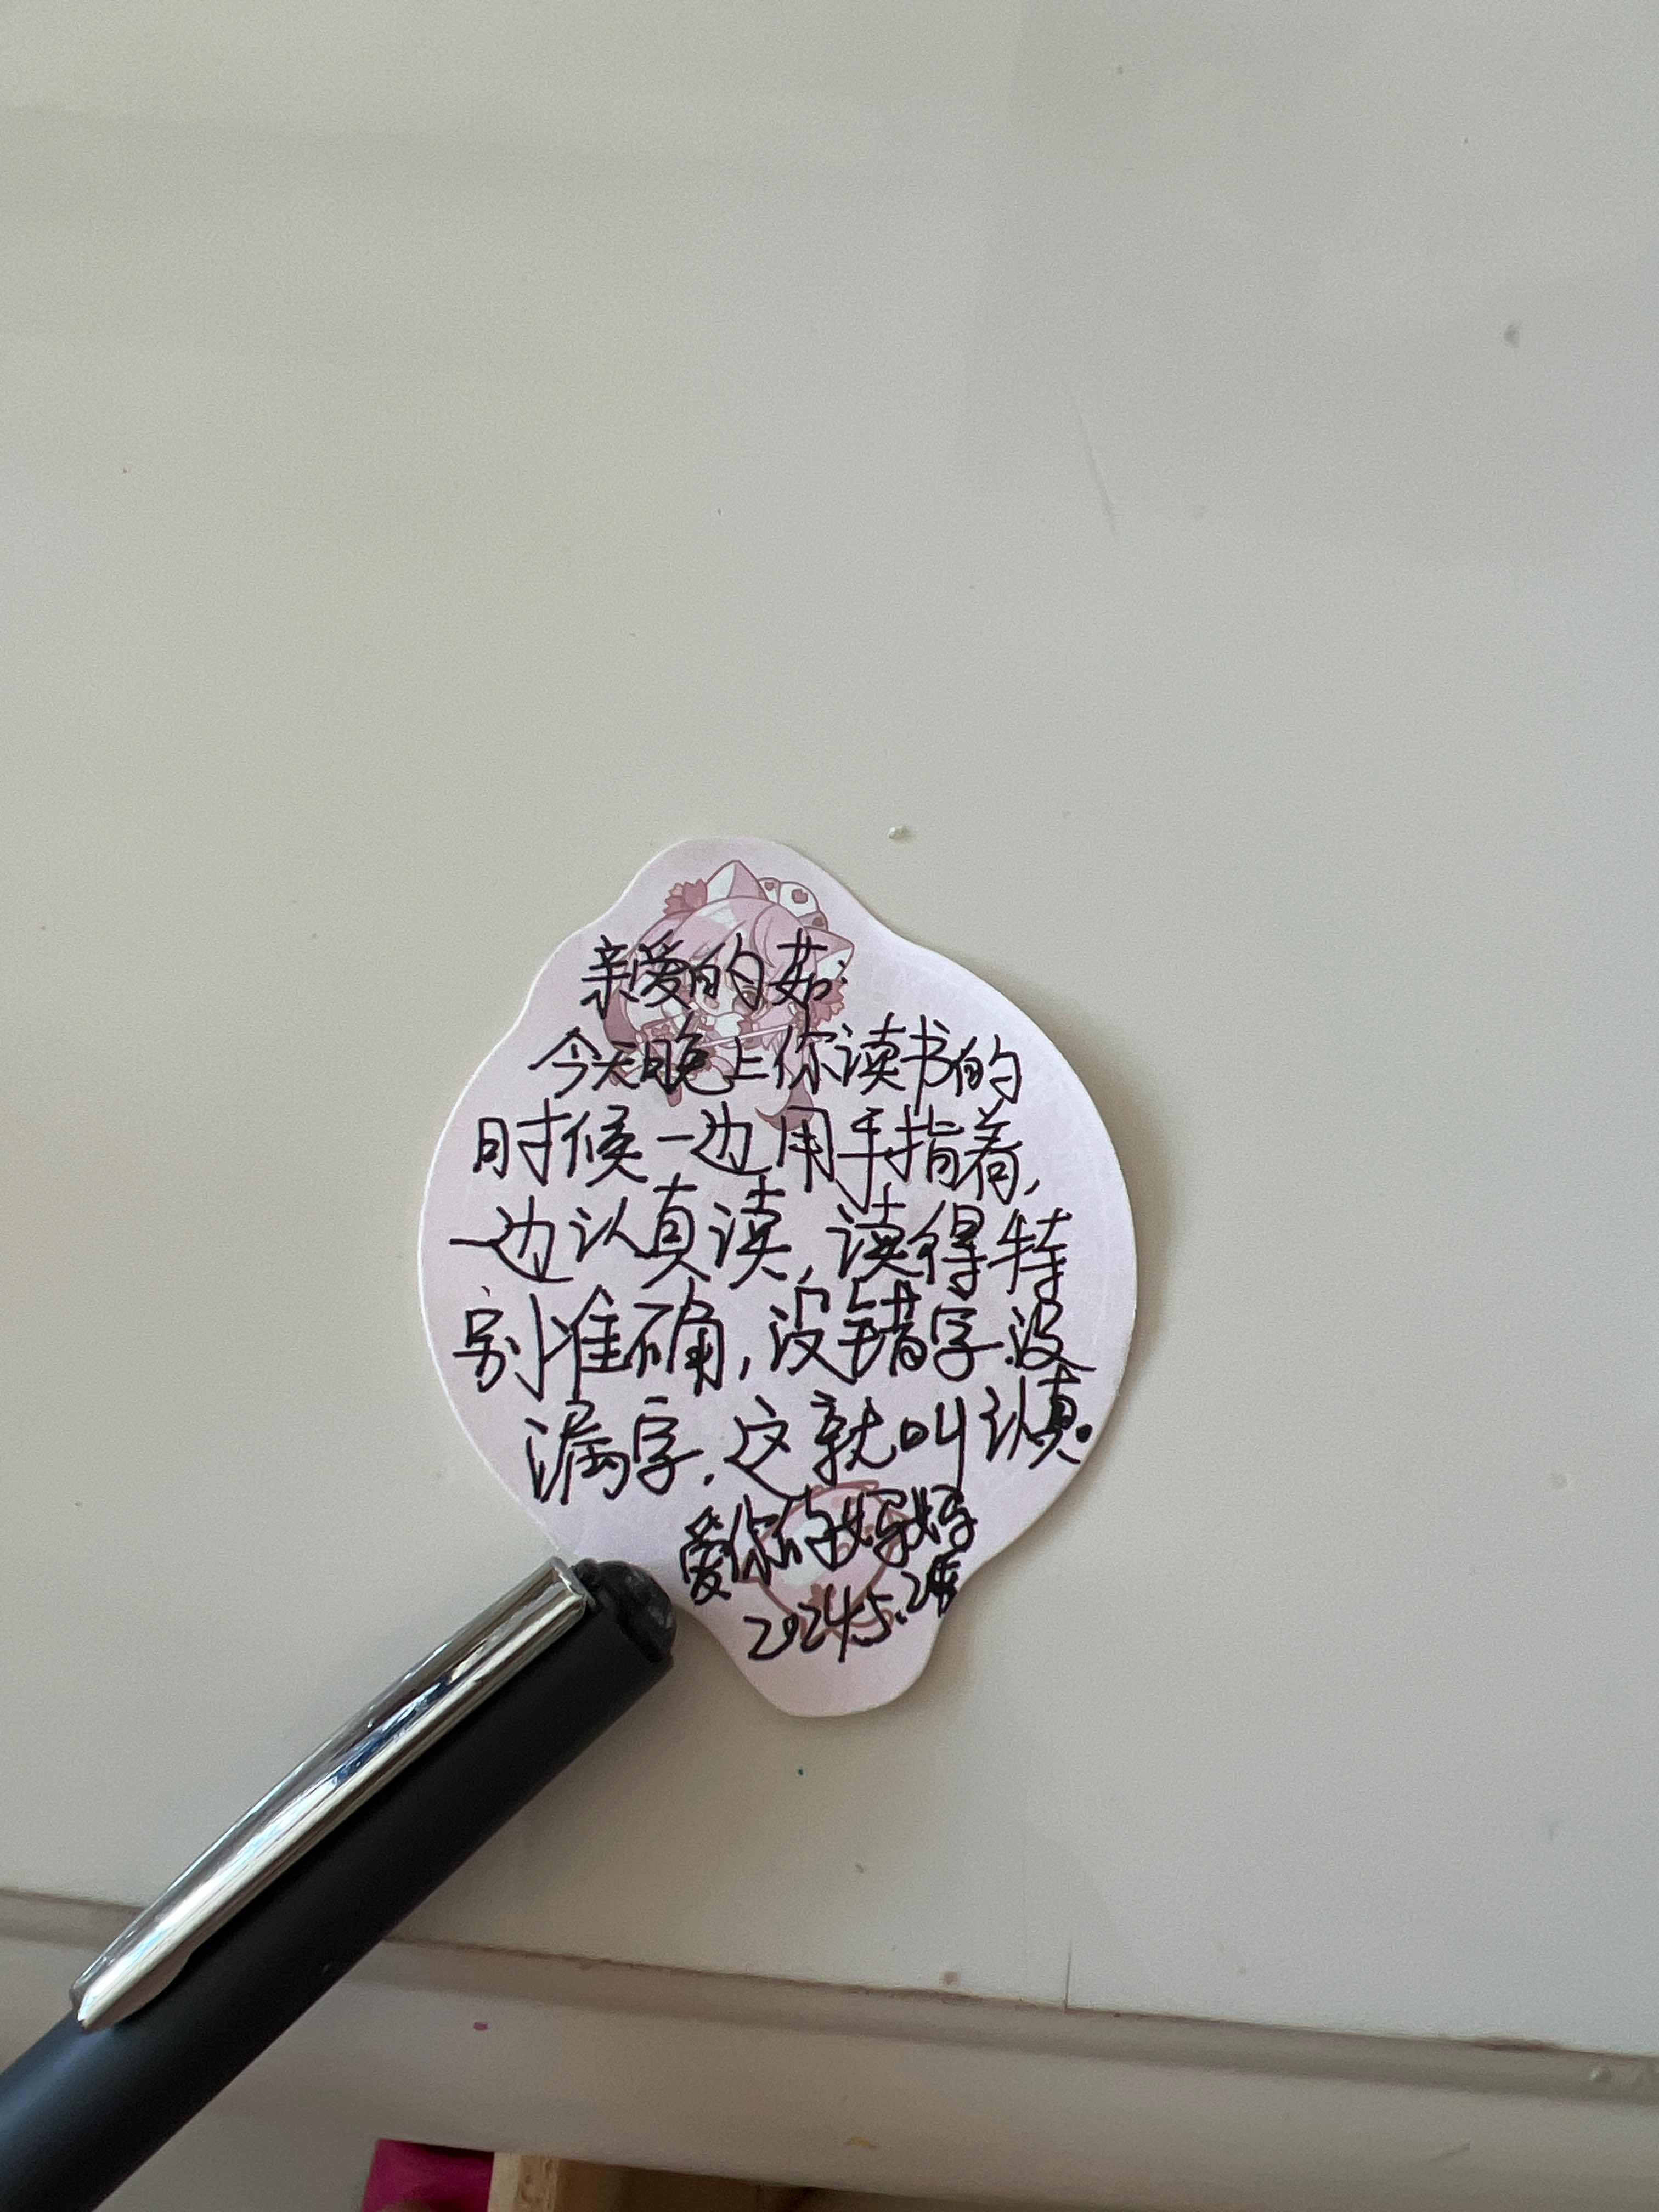 亲爱的茹:
今天晚上你读书的
时候一边用手指着,
一边认真读,读得特
别准确,没错字.没
漏字.这就叫认真.
爱你的妈妈
2024.5.2